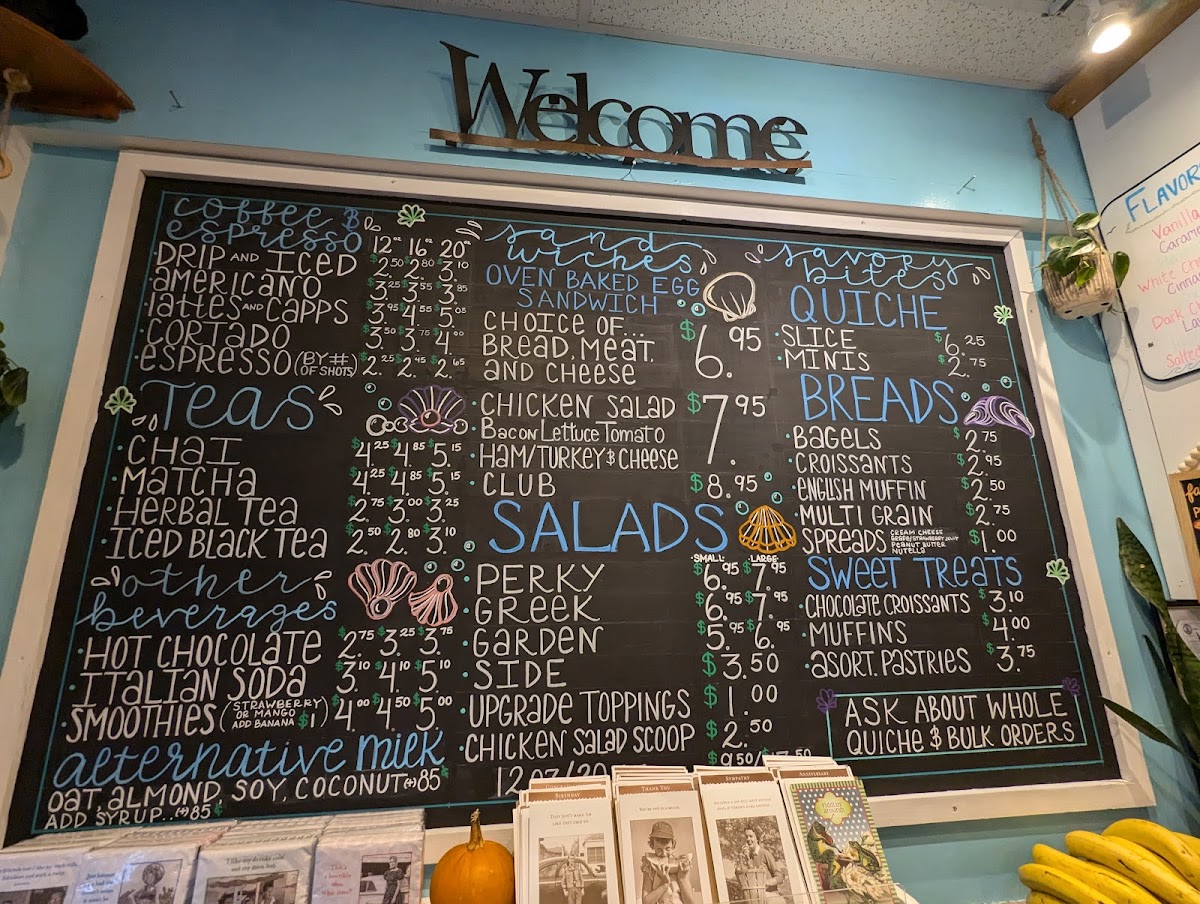 Welcome
coffee &
espresso
12oz 16oz 20oz
DRIP AND ICED $2.50 $2.80 $3.10
AMERICANO $3.25 $3.55 $3.85
lattes AND CAPPS $3.95 $4.55 $5.05
CORTADO $3.50 $3.75 $4.00
ESPRESSO (BY # OF SHOTS) $2.25 $2.45 $2.65
TEAS
CHAI $4.25 $4.85 $5.15
MATCHA $4.25 $4.85 $5.15
HERBAL TEA $2.75 $3.00 $3.25
ICED BLACK TEA $2.50 $2.80 $3.10
other
beverages
HOT CHOCOLATE $2.75 $3.25 $3.75
ITALIAN SODA $3.10 $4.10 $5.10
SMOOTHIES (STRAWBERRY OR MANGO ADD BANANA $1) $4.00 $4.50 $5.00
alternative milk
OAT, ALMOND, SOY, COCONUT (+) 85¢
ADD SYRUP...(+) 85¢
Sand
wiches
OVEN BAKED EGG
SANDWICH
CHOICE OF... $6.95
BREAD, MEAT,
AND CHEESE
CHICKEN SALAD $7.95
Bacon Lettuce Tomato
HAM/TURKEY & CHEESE
CLUB $8.95
SALADS
SMALL: LARGE:
PERKY $6.95 $7.95
GREEK $6.95 $7.95
GARDEN $5.95 $6.95
SIDE $3.50
UPGRADE TOPPINGS $1.00
CHICKEN SALAD SCOOP $2.50
savory
bites
QUICHE
SLICE $6.25
MINIS $2.75
BREADS
BAGELS $2.75
CROISSANTS $2.95
ENGLISH MUFFIN $2.50
MULTI GRAIN $2.75
SPREADS CREAM CHEESE PEANUT BUTTER NUTELLA $1.00
SWEET TREATS
CHOCOLATE CROISSANTS $3.10
MUFFINS $4.00
ASORT. PASTRIES $3.75
ASK ABOUT WHOLE
QUICHE & BULK ORDERS
FLAVOR
Vanilla
Caram
White Ch
Cinna
Dark C
Salted
BIRTHDAY
THANK YOU
SYMPATHY
ANNIVERSARY